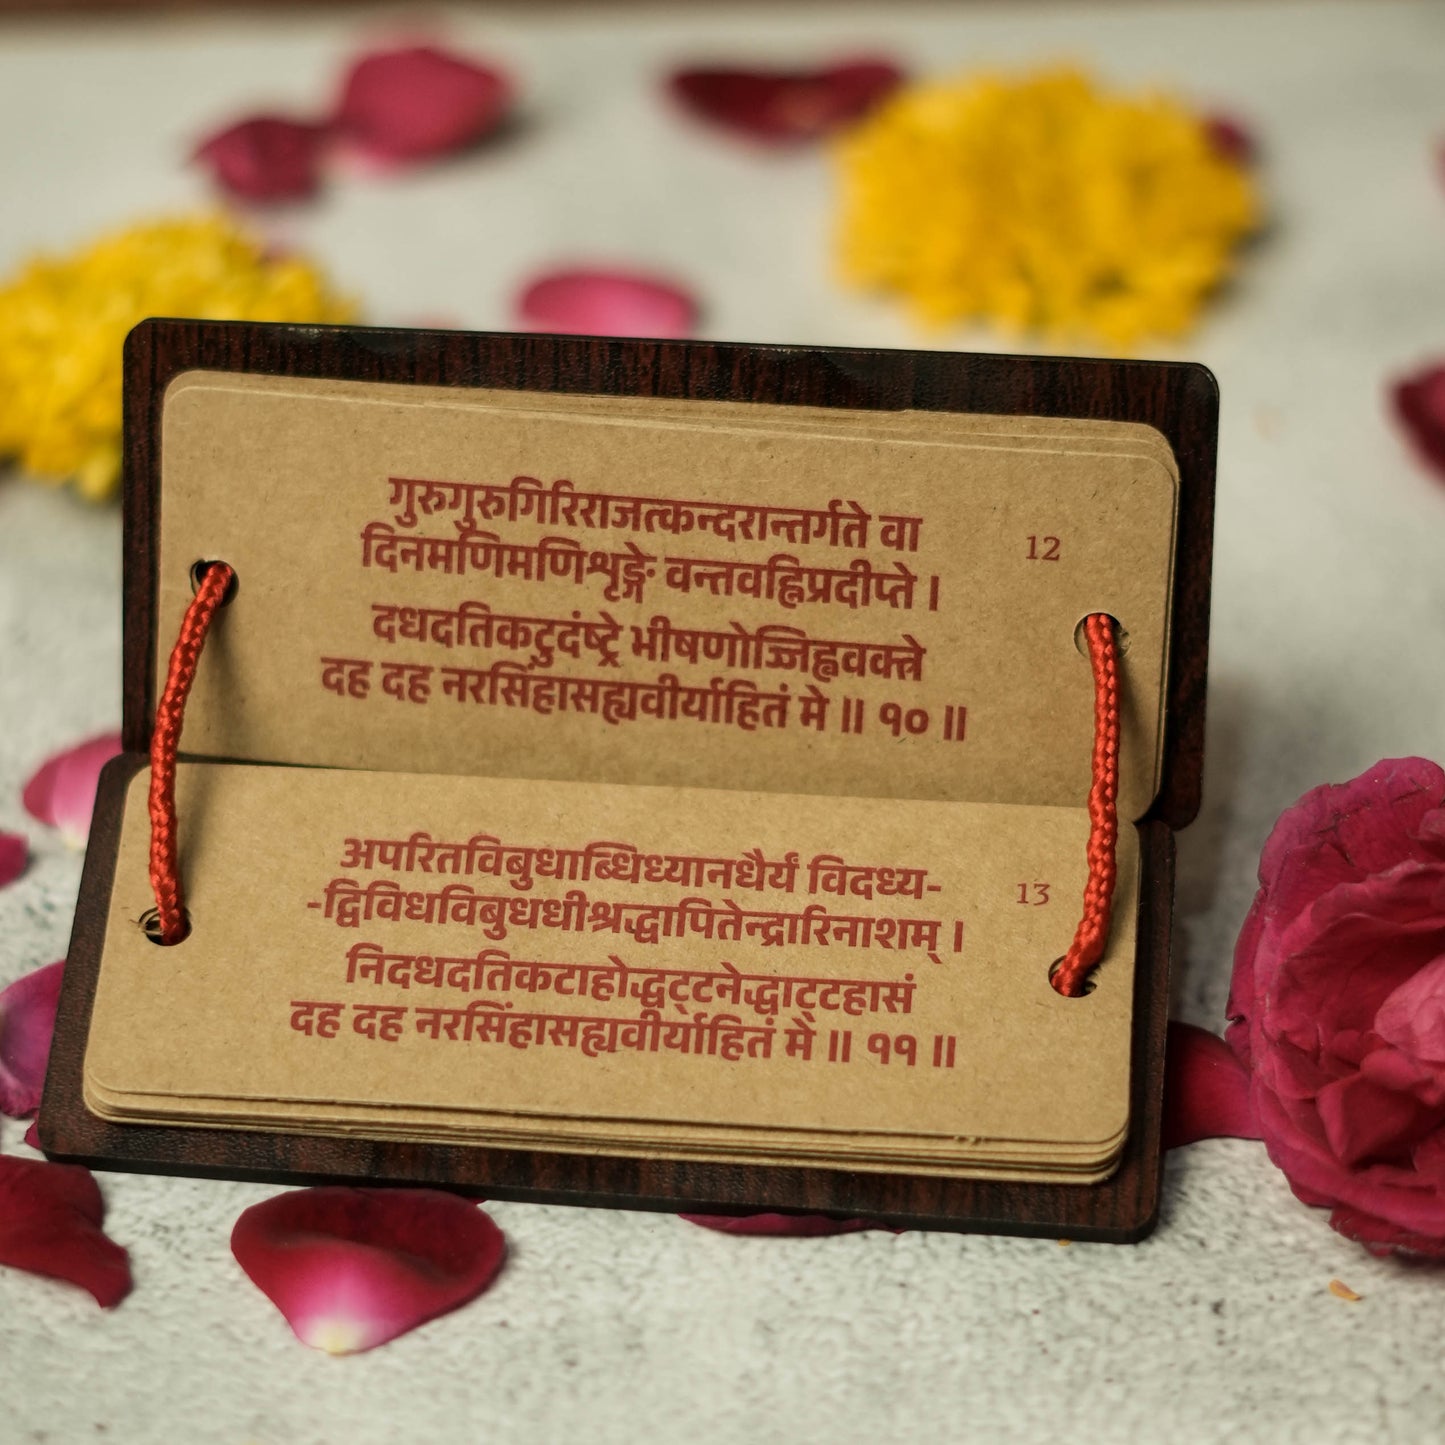 गुरुगुरुगिरिराजत्कन्दरान्तर्गते वा
12
दिनमणिमणिशृङ्गे वन्तवह्निप्रदीप्ते ।
दधदतिकटुदंष्ट्रे भीषणोज्जिह्ववक्त्रे
दह दह नरसिंहासह्यवीर्याहितं मे ॥ १० ॥
अपरितविबुधाब्धिध्यानधैर्यं विदध्य-
13
-द्विविधविबुधधीश्रद्धापितेन्द्रारिनाशम् ।
निदधदतिकटाहोद्धट्टनेद्धाट्टहासं
दह दह नरसिंहासह्यवीर्याहितं मे ॥ ११ ॥